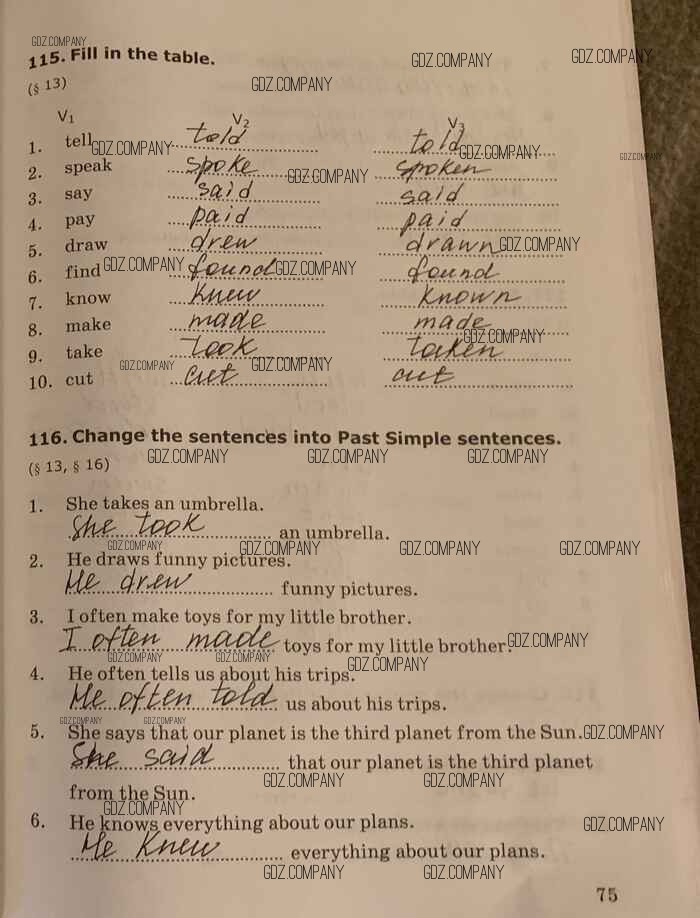 GDZ.COMPANY
115. Fill in the table. GDZ.COMPANY GDZ.COMPANY
(§ 13) GDZ.COMPANY
V1 V2 V3
1. tell GDZ.COMPANY told told GDZ.COMPANY GDZ.COMPANY
2. speak spoke GDZ.COMPANY spoken
3. say said said
4. pay paid paid
5. draw drew drawn GDZ.COMPANY
6. find GDZ.COMPANY found GDZ.COMPANY found
7. know knew known
8. make made made GDZ.COMPANY
9. take took taken
GDZ.COMPANY GDZ.COMPANY
10. cut cut cut
116. Change the sentences into Past Simple sentences.
(§ 13, § 16) GDZ.COMPANY GDZ.COMPANY GDZ.COMPANY
1. She takes an umbrella.
She took an umbrella.
GDZ.COMPANY GDZ.COMPANY GDZ.COMPANY GDZ.COMPANY
2. He draws funny pictures.
He drew funny pictures.
3. I often make toys for my little brother.
I often made toys for my little brother. GDZ.COMPANY
GDZ.COMPANY GDZ.COMPANY GDZ.COMPANY
4. He often tells us about his trips.
He often told us about his trips.
GDZ.COMPANY GDZ.COMPANY GDZ.COMPANY
5. She says that our planet is the third planet from the Sun. GDZ.COMPANY
She said that our planet is the third planet
GDZ.COMPANY GDZ.COMPANY
from the Sun.
GDZ.COMPANY
6. He knows everything about our plans. GDZ.COMPANY
He knew everything about our plans.
GDZ.COMPANY GDZ.COMPANY
75